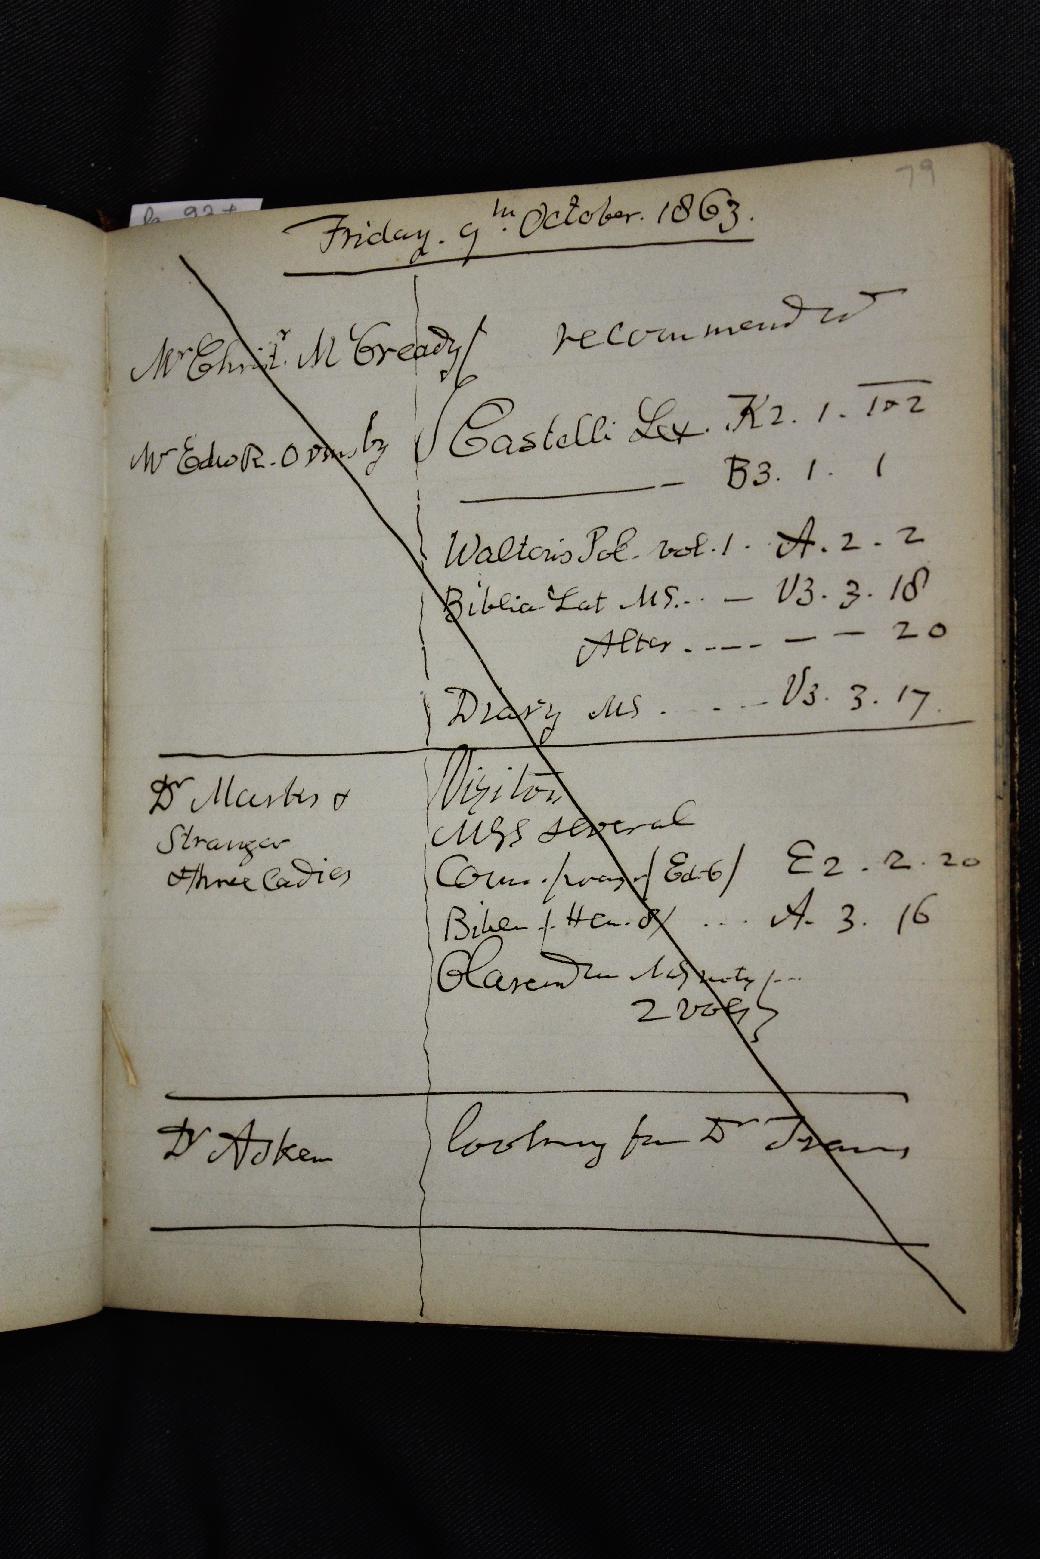 79
Friday. 9th. October. 1863.
Mr Christr. McCready recommended
Mr Edw R. Ormsby Castelli Lex. K2. 1. 1&2
——— B3. 1. 1
Waltoris Pol. vol. 1. A. 2. 2
Biblia Lat MS.. — V3. 3. 18
Alter .---- — — 20
Diary MS . . . . . V3. 3. 17.
Dr &
Stranger
& three Ladies
Visitors
MSS several
Com. Ed. 6 / E2. 2. 20
Hen. 8 / ... A. 3. 16
MS
2 vols
Dr looking for Dr